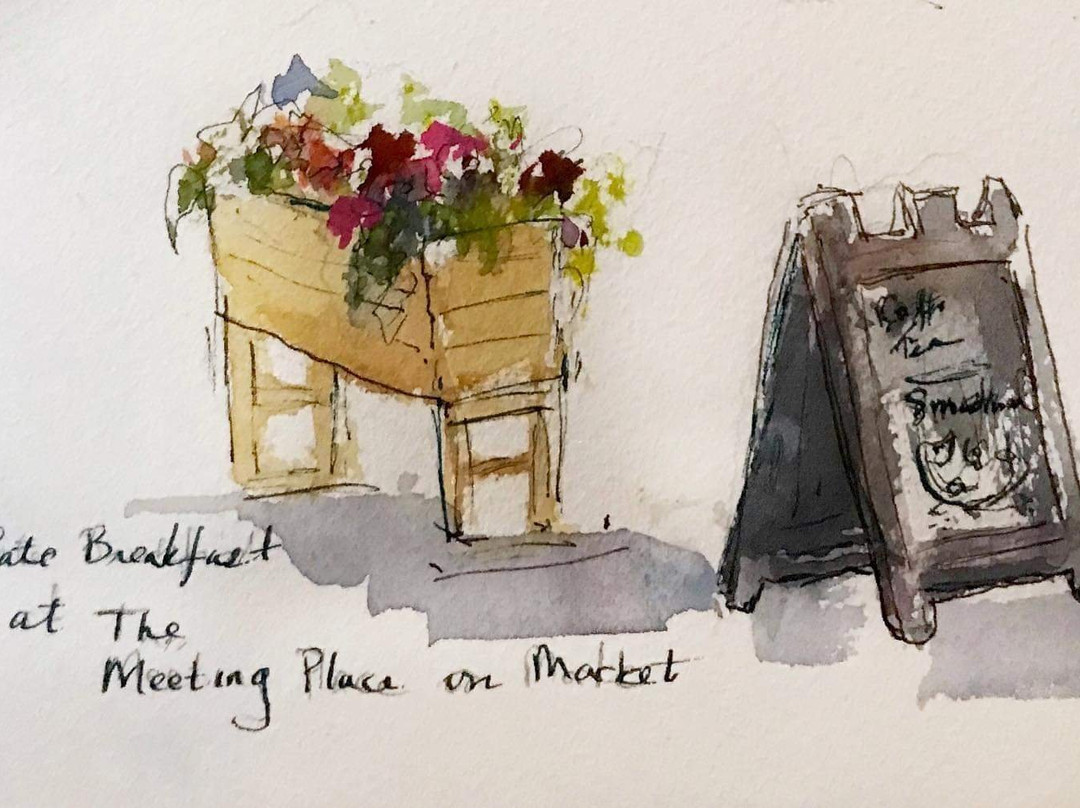 Late Breakfast
at The
Meeting Place on Market
Tea